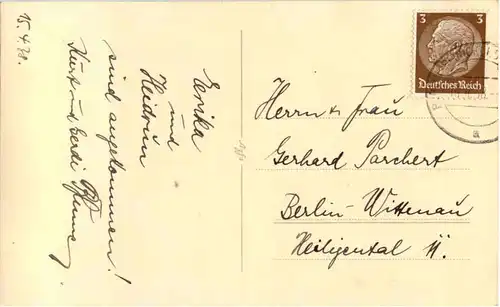 15.4.38.
Erika
und
Heidrun
sind angekommen!
Kurt und Gerdi
3 3
Deutsches Reich
a
Herrn u Frau
Gerhard Parchert
Berlin-Wittenau
Heiligental 11.